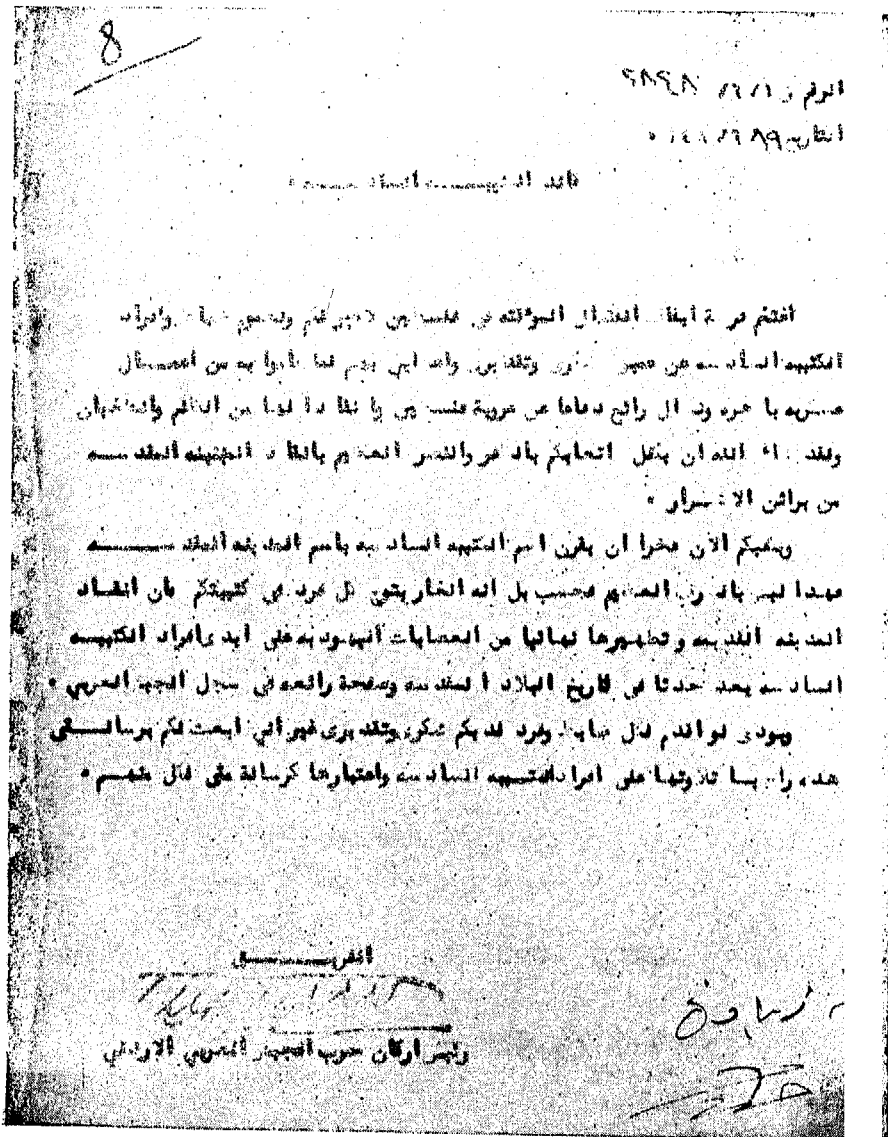 8
الرقم
التاريخ
قائد الكتيبـــــــه السادســـــه
اغتنم فرصة ايقاف القتال المؤقته في فلسطين لاعبر لكم ولجميع ضباط وافراد
الكتيبه السادسه عن عميق شكرى وتقديرى واعجابي بهم لما قاموا به من اعمـــال
عسكريه باهره ونضال رائع دفاعا عن عروبة فلسطين وانقاذا لها من الظلم والطغيان
ولقد شاء الله ان يكلل اتعابكم بالنصر العظيم بانقاذ المدينه المقدســـه
من براثن الاشـرار ٠
ويكفيكم الآن فخرا ان يقرن اسم الكتيبه السادسه باسم المدينه المقدســـــه
فهذا ليس بالشرف العظيم فحسب بل انه الفخار يتوج كل فرد في كتيبتكم فان انقـاذ
المدينه القديمه وتطهيرها نهائيا من العصابات اليهوديه على ايدى افراد الكتيبــه
السادسه يعد حدثا في تاريخ البلاد المقدسه وصفحة رائعه في سجل الجيش العربي ٠
وبودى لو اقدم لكل ضابط وفرد لديكم شكرى وتقديرى غير اني ابعث لكم برسالـــتي
هذه راجيا تلاوتها على افراد الكتيبه السادسه واعتبارها كرسالة مني لكل منهــم ٠
الفريـــــــق
رئيس اركان حرب الجيش العربي الاردني